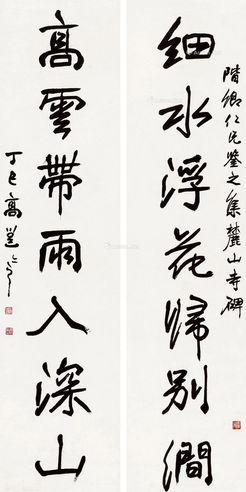 階卿仁兄鑒之集麓山寺碑
細水浮花歸別澗
高雲帶雨入深山
丁巳高邕